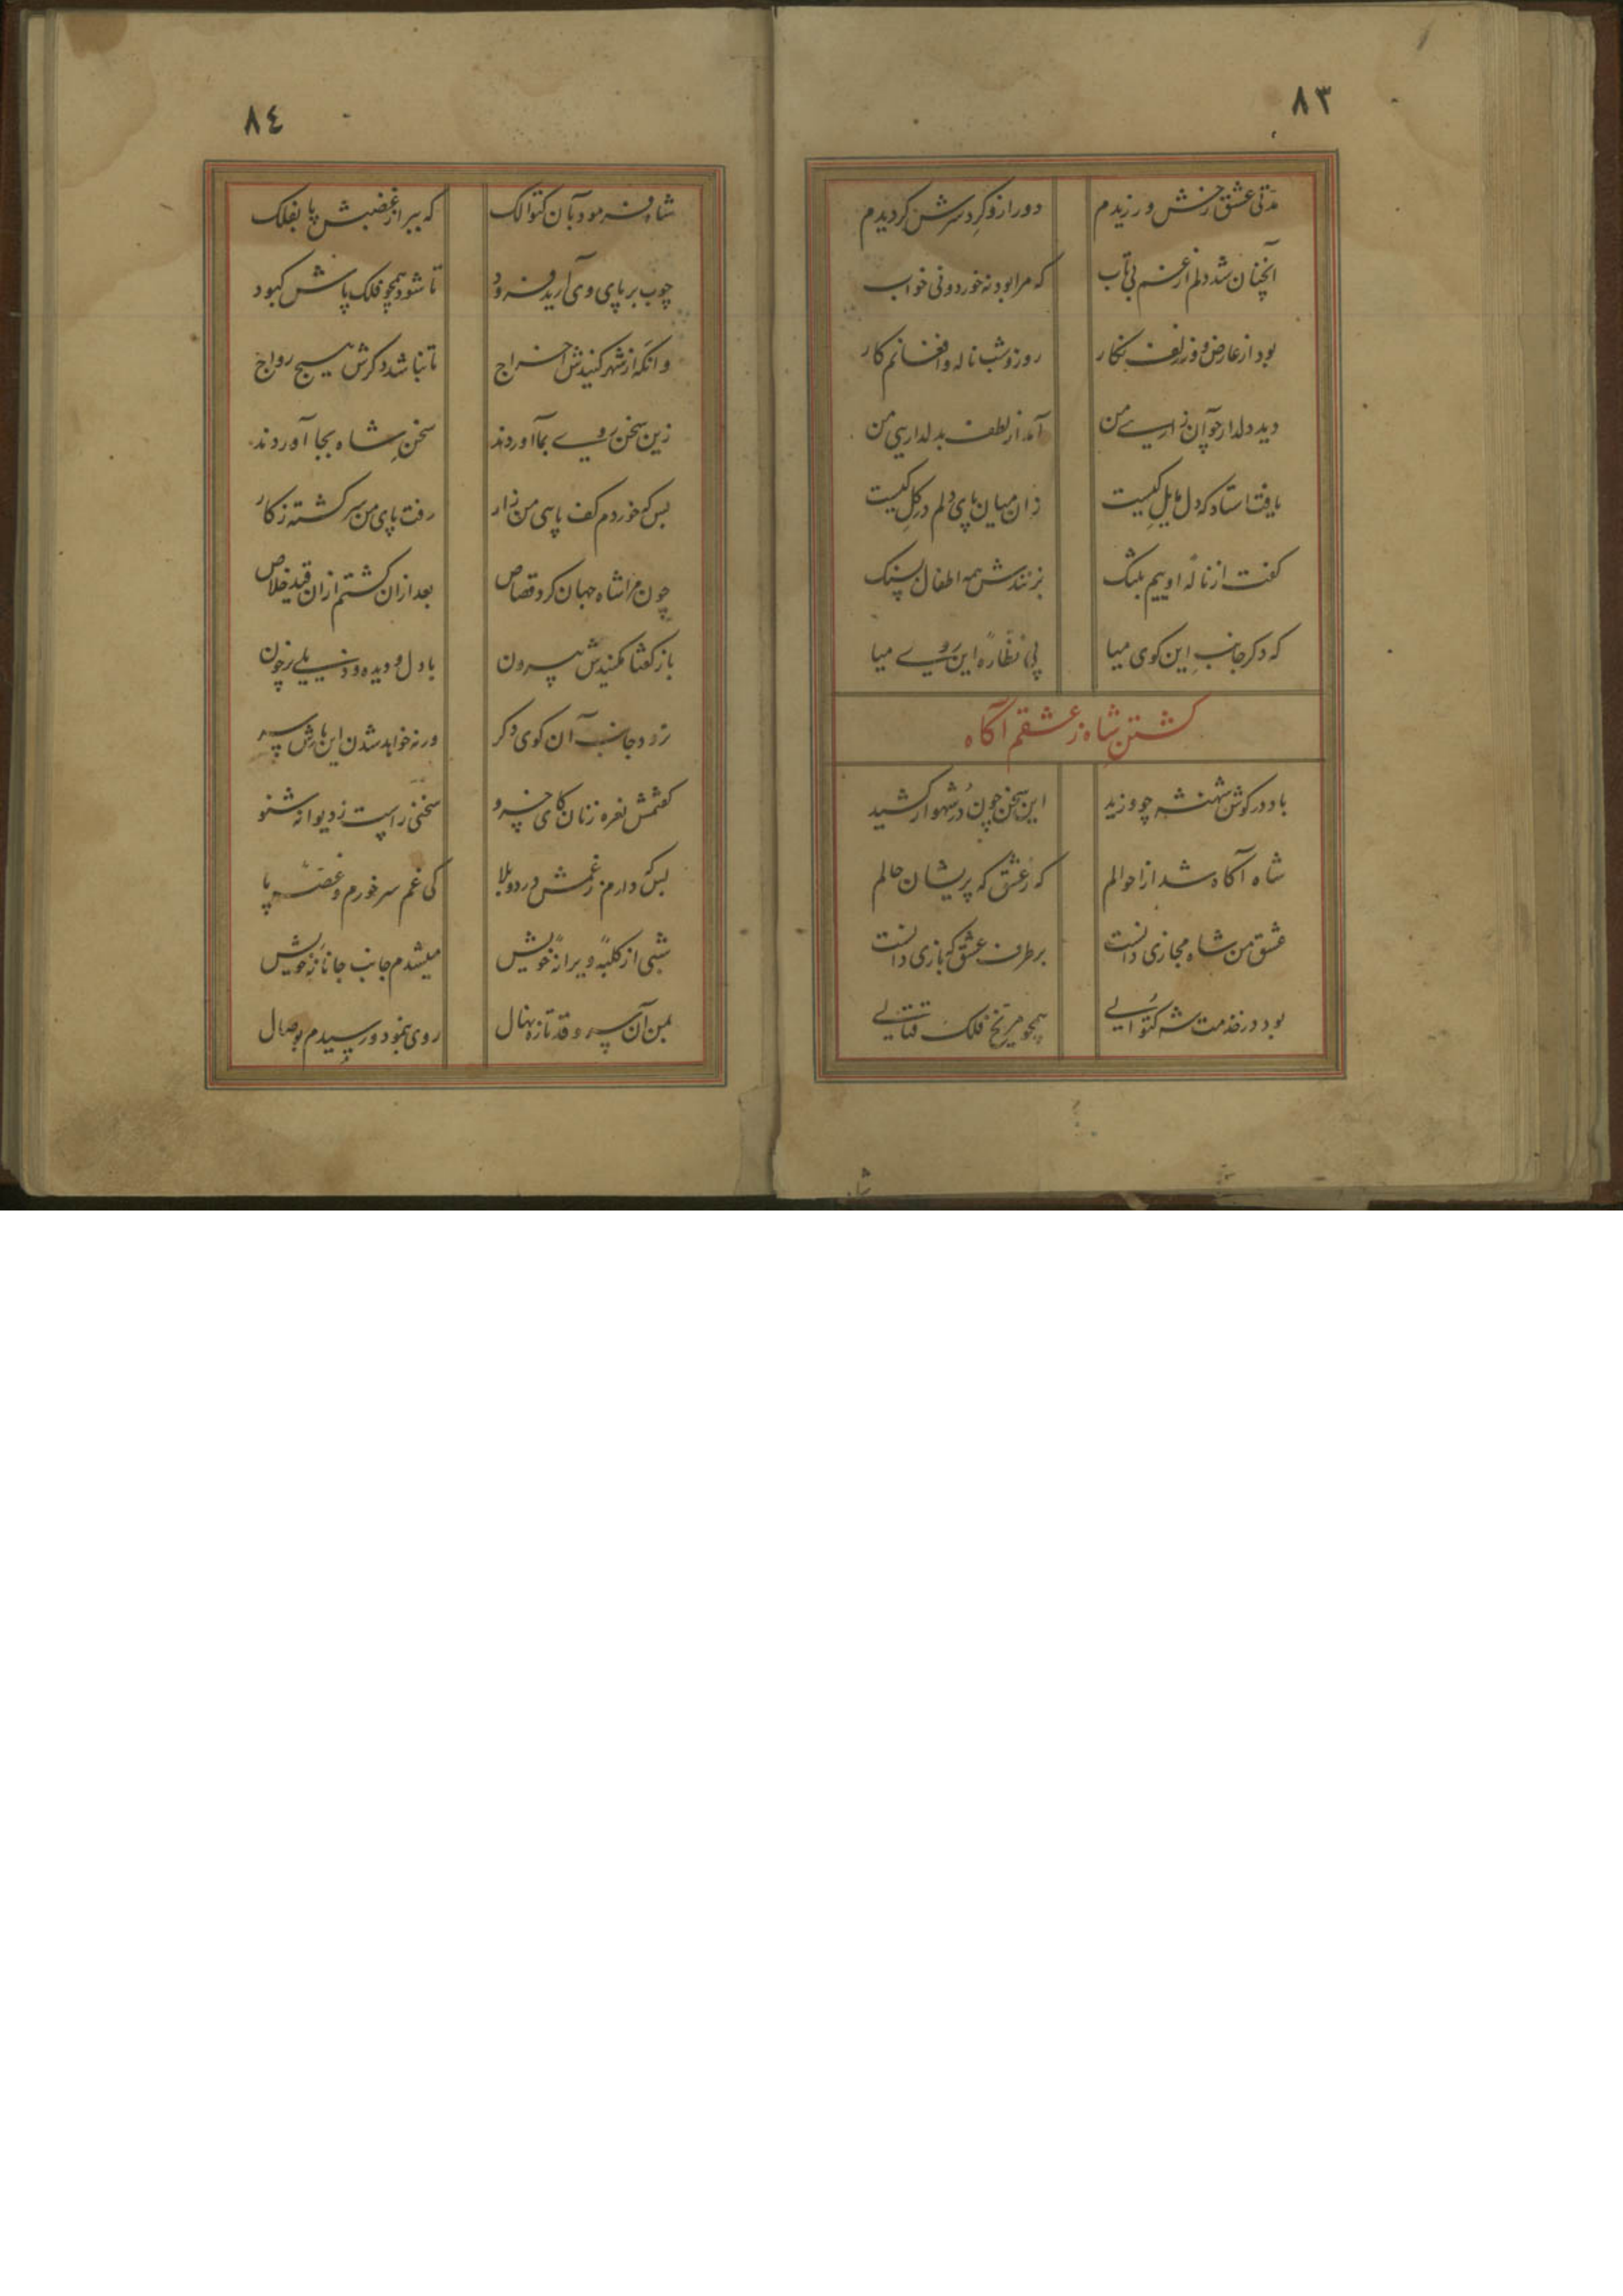 ٨٣
مدتی عشق رخش ورزیدم دور ازو کرد سرش کردیدم
آنچنان شد دلم از غم بی تاب که مرا بود نه خورد و نی خواب
بود از عارض و زلف نکار روز و شب ناله و افغانم کار
دید دلدار چو آن زاری من آمد از لطف بدلداریی من
یافت استاد که دل مایل کیست زان میان پای دلم در کل کیست
کفت از نالهٔ اوییم بتنک بزنندش همه اطفال بسنک
که دکر جانب این کوی میا پی نظارهٔ این روی میا
کشتن شاه ز عشقم آکاه
باد در کوش شهنشه چو وزید این سخن چون در شهوار کشید
شاه آکاه شد از احوالم که ز عشق که پریشان حالم
عشق من شاه مجازی دانست برطرف عشق که بازی دانست
بود در خدمت شه کتوالی همچو مریخ فلک قتالی
٨٤
شاه فرمود بآن کتوالک که ببر از غضبش پا بفلک
چوب بر پای وی آرید فرود تا شود همچو فلک پاش کبود
وانکه از شهر کنیدش اخراج تا نباشد دکرش هیچ رواج
زین سخن روی بما آوردند سخن شاه بجا آوردند
بس که خوردم کف پایی من زار رفت پای من سرکشته ز کار
چون مرا شاه جهان کرد قصاص بعد ازان کشتم ازان قید خلاص
باز کفتا کنیدش بیرون با دل و دیده و ذیلی پرخون
نرود جانب آن کوی دکر ورنه خواهد شدن این بارش سر
کفتمش نعره زنان کای خسرو سخنی راست ز دیوانه شنو
بس که دارم ز غمش درد و بلا کی غم سر خورم و غصهٔ پا
شبی از کلبهٔ ویرانهٔ خویش میشدم جانب جانانهٔ خویش
بمن آن سرو قد تازه نهال روی بنمود و رسیدم بوصال